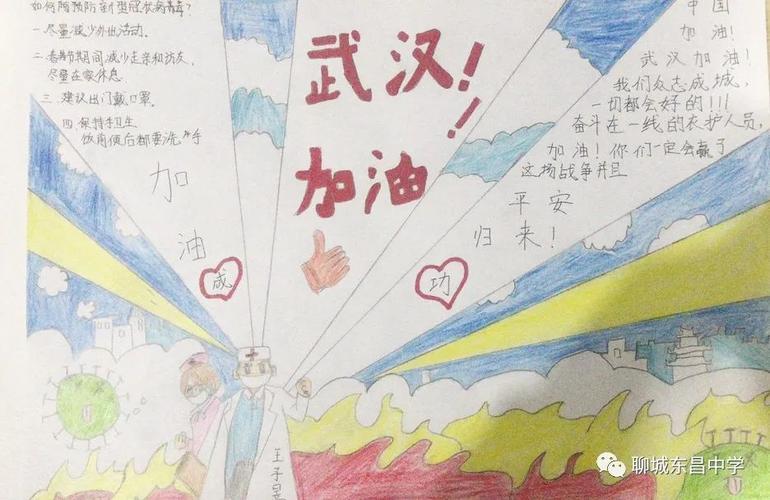 如何预防新型冠状病毒?
一.尽量减少外出活动.
二.春节期间减少走亲和访友,
尽量在家休息.
三.建议出门戴口罩.
四.保持卫生
饭前便后都要洗手
加
油
成
武汉!
加油!
功
中国
加油!
武汉加油!
我们众志成城,
一切都会好的!!!
奋斗在一线的衣护人员,
加油!你们一定会赢了
这场战争并且
平安
归来!
王子
聊城东昌中学